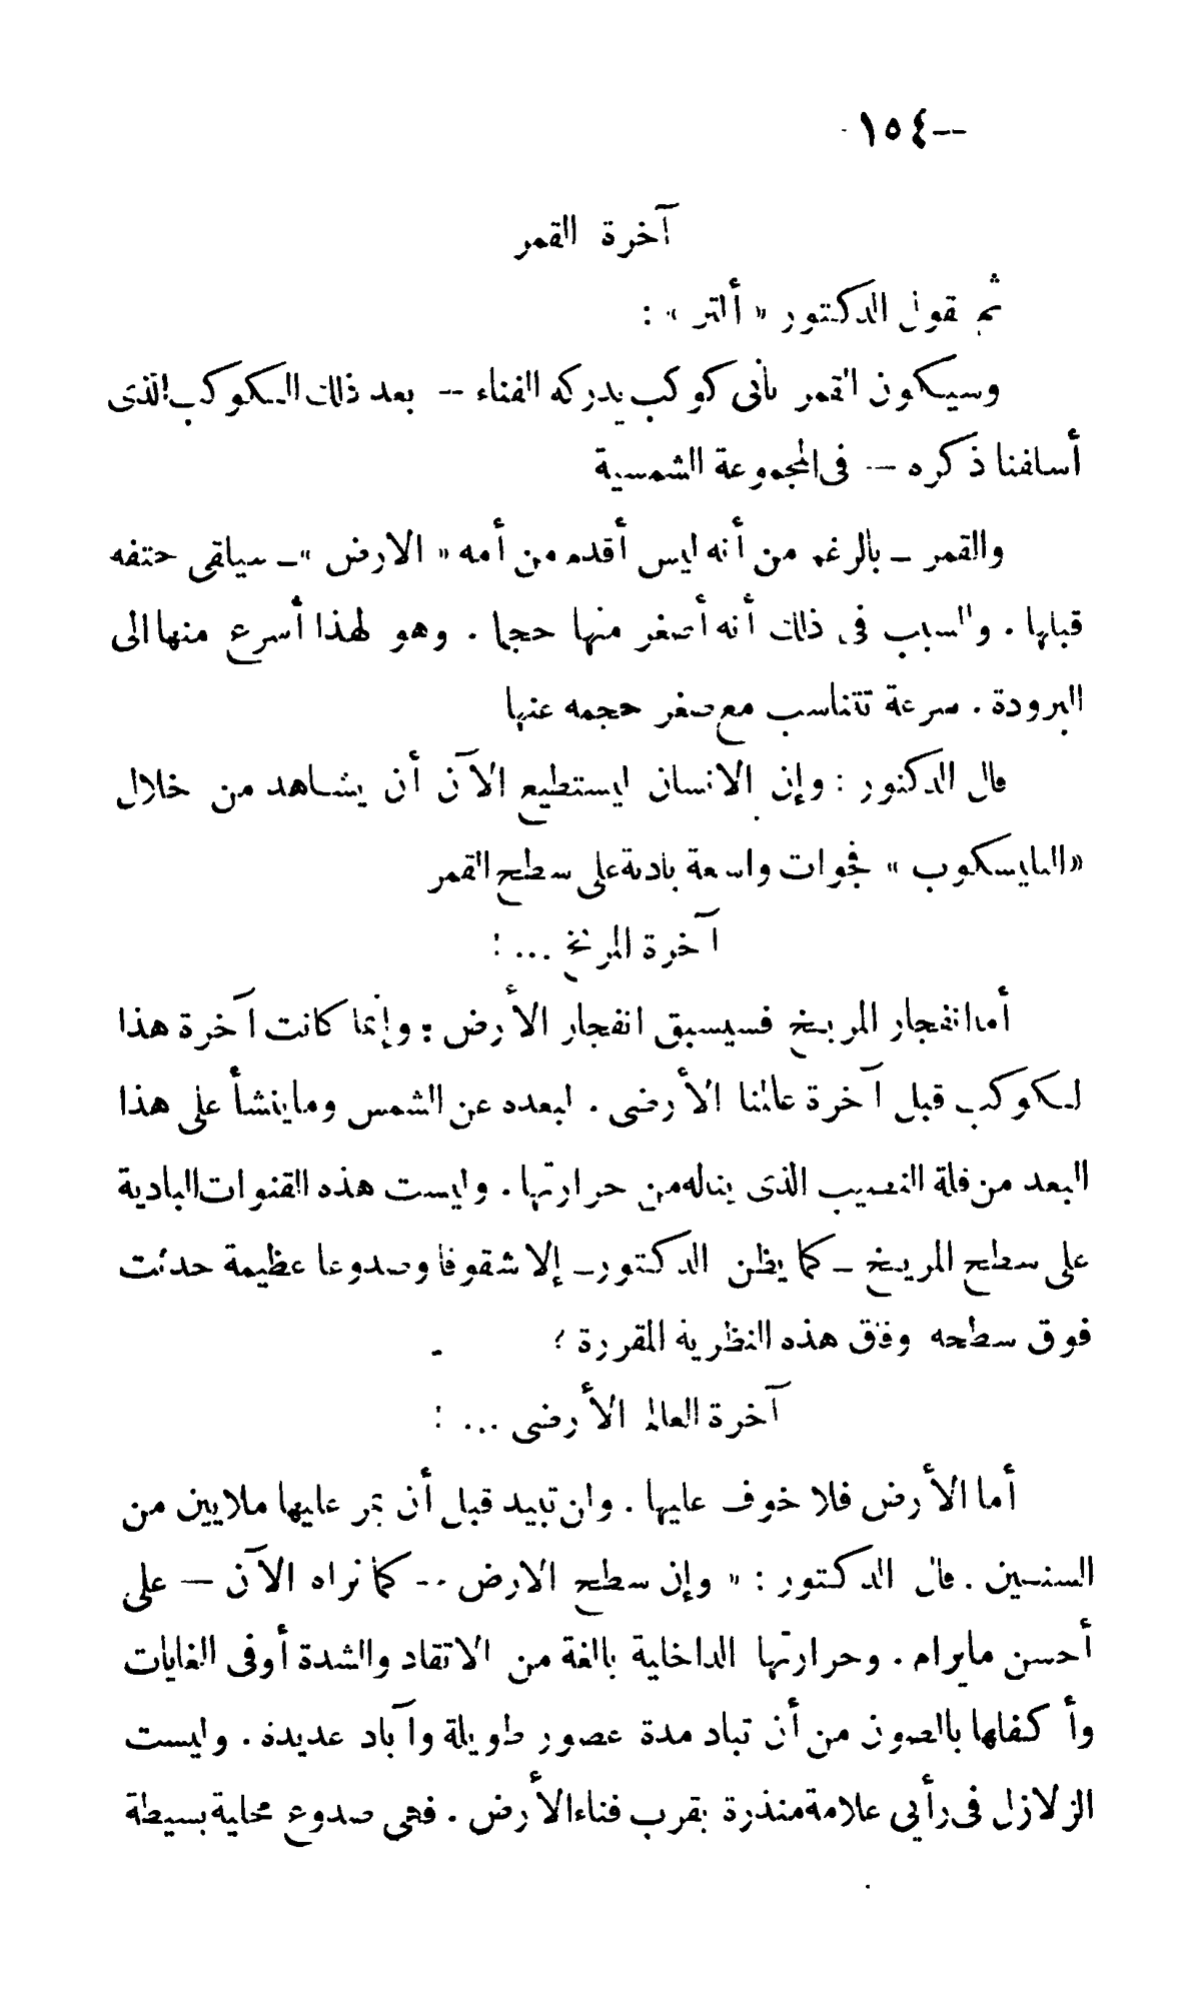 --١٥٤-
آخرة القمر
ثم يقول الدكتور « ألتر » :
وسيكون القمر ثاني كوكب يدركه الفناء -- بعد ذلك الكوكب الذى
أسلفنا ذكره -- فى المجموعة الشمسية
والقمر – بالرغم من أنه ليس أقدم من أمه « الارض »– سيلقى حتفه
قبلها . والسبب فى ذلك أنه أصغر منها حجما . وهو لهذا أسرع منها الى
البرودة . سرعة تتناسب مع صغر حجمه عنها
قال الدكتور : وإن الانسان ليستطيع الآن أن يشاهد من خلال
«التليسكوب » فجوات واسعة بادية على سطح القمر
آخرة المريخ ... :
أما انفجار المريخ فسيسبق انفجار الأرض : وإنما كانت آخرة هذا
لكوكب قبل آخرة عالمنا الأرضى . لبعده عن الشمس وما ينشأ على هذا
البعد من قلة النصيب الذى يناله من حرارتها . وليست هذه القنوات البادية
على سطح المريخ – كما يظن الدكتور – إلا شقوقا وصدوعا عظيمة حدثت
فوق سطحه وفق هذه النظرية المقررة ؛
آخرة العالم الأرضى ... :
أما الأرض فلا خوف عليها . ولن تبيد قبل أن تمر عليها ملايين من
السنين . قال الدكتور : « وإن سطح الارض -- كما نراه الآن — على
أحسن مايرام . وحرارتها الداخلية بالغة من الاتقاد والشدة أوفى الغايات
وأكفلها بالصون من أن تباد مدة عصور طويلة وآباد عديدة . وليست
الزلازل فى رأيى علامة منذرة بقرب فناء الأرض . فهى صدوع محلية بسيطة